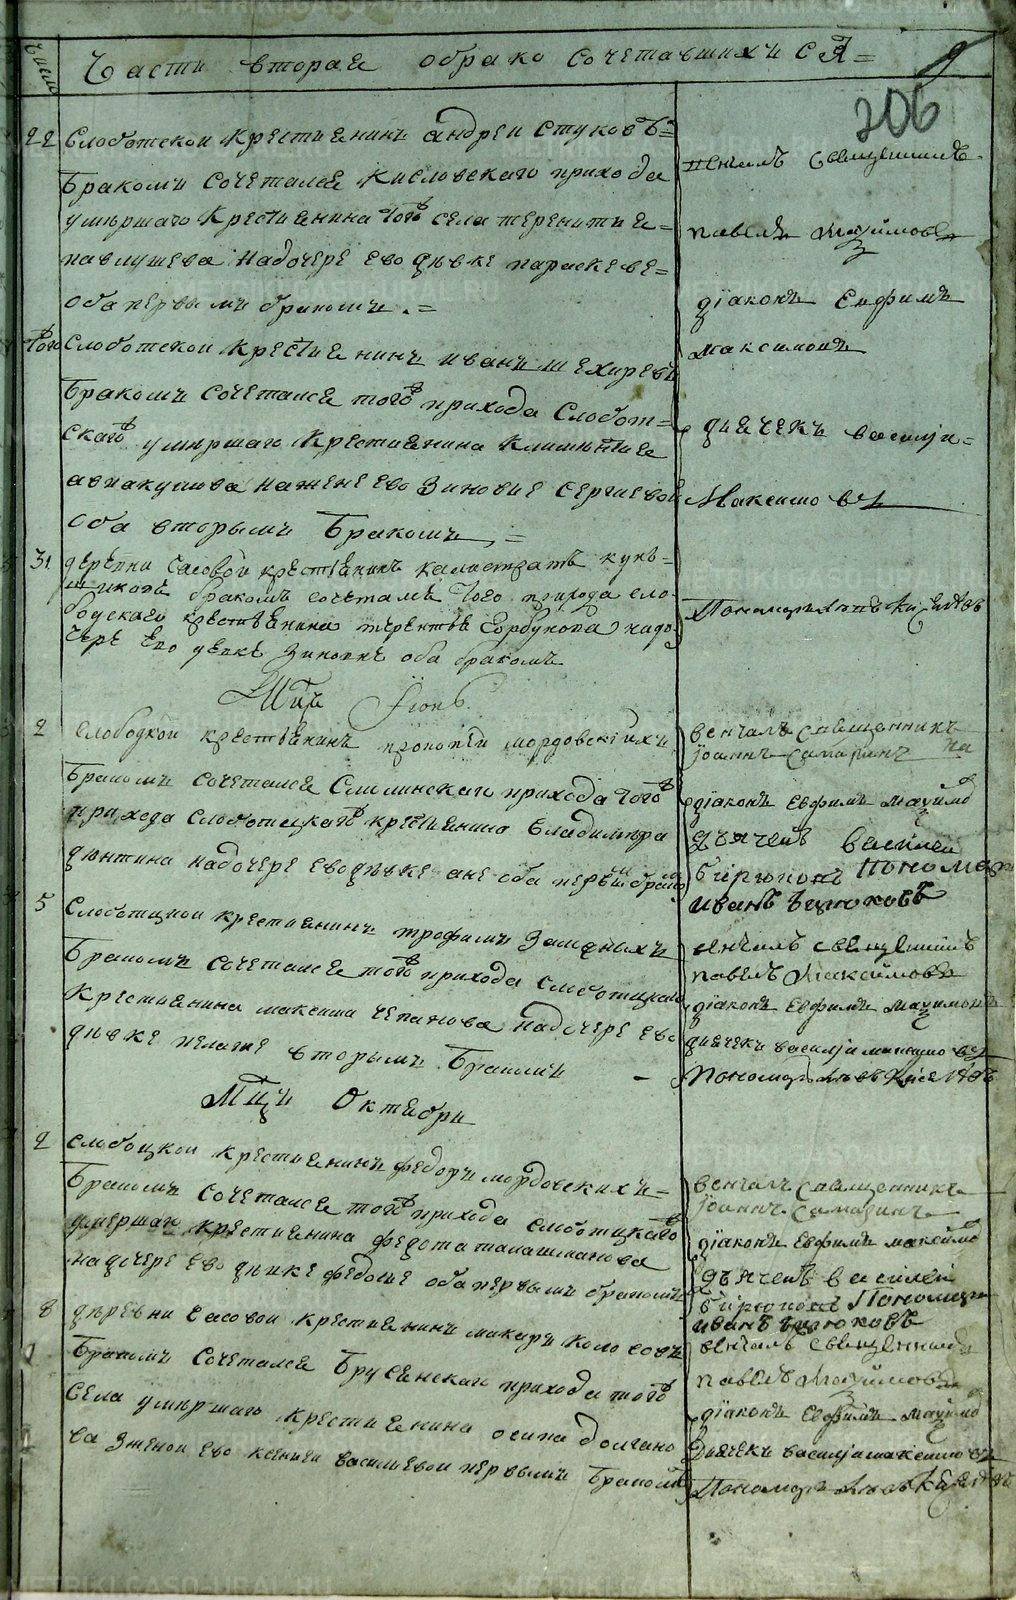 Число
Части вторая о брако сочетавшихся
9
206
22 Слоботской крестиенинъ андреи стуковъ
Бракомъ сочетался кисловскаго прихода
умершаго крестиенина того села терентие
павлушева на дочере ево девке параскеве
оба первымъ бракомъ.
венчалъ священникъ
павелъ Маѯимовъ
дїаконъ Евфимъ
максимовъ
того Слоботской крестиенинъ иванъ шехиревъ
Бракомъ сочетался того прихода Слобот
скаго умершаго крестиенина климентие
авакумова на жене ево Зиновие Сергиевой
оба вторымъ Бракомъ
дьячекъ василий
Максимовъ
31 деревни Сасовой крестьянинъ калистратъ кунь
щиковъ бракомъ сочетался того прихода сло
боцкаго крестьянина терентья Горбунова на до
чере ево девке Зиновие оба бракомъ
Пономарь
Мцъ Iюнь
2 слободкой крестьянинъ прокопий мордовскихъ
Бракомъ сочетался Слиминскаго прихода того
прихода слоботцкаго крестиенина Владимира
дюнтина на дочере ево девке ане оба первымъ браком
венчалъ священникъ
Iоаннъ Самаринъ
дїаконъ Евфимъ маѯимов
дьячекъ василей
бирюковъ пономарь
иванъ бирюковъ
5 Слоботцкой крестиенинъ трофимъ Замедныхъ
Бракомъ сочетался того прихода слоботцкаго
крестиенина максима чепанова на дочере ево
девке пелагие вторымъ Бракомъ
венчалъ священникъ
павелъ Маѯимовъ
дїаконъ Евфимъ маѯимовъ
дьячекъ василий максимовъ
Пономарь
Мцъ Октября
2 слобоцкой крестиенинъ федоръ мордовскихъ
Бракомъ сочетался того прихода слоботцкаго
умершаго крестиенина федота талашманова
на дочере ево девке федосие оба первымъ бракомъ
венчалъ священникъ
Iоаннъ Самаринъ
дїаконъ Евфимъ максимов
дьячекъ василей
бирюковъ Пономарь
иванъ бирюковъ
8 деревни Сасовой крестиенинъ макаръ колосовъ
Бракомъ сочетался Брусенскаго прихода того
села умершаго крестиенина осипа долгано
ва з женой ево ксенией васильевой первымъ Бракомъ
венчалъ священникъ
павелъ Маѯимовъ
дїаконъ Евфимъ маѯимов
дьячекъ василий максимовъ
Пономарь
METRIKI.GASO-URAL.RU